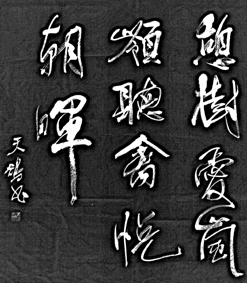 憩樹愛嵐
嶺聽禽悅
朝暉
天